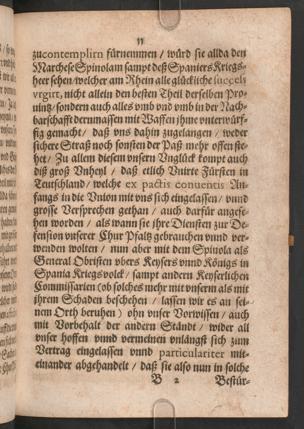 11
zucontemplirn fürnemmen / würd sie allda den
Marchese Spinolam sampt deß Spaniers Kriegs-
heer sehen/welcher am Rhein alle glückliche succels
vrgirt, nicht allein den besten Theil derselben Pro-
uintz/sondern auch alles vmb vnd vmb in der Nach-
barschafft dermassen mit Waffen jhme vnterwürf-
fig gemacht / daß vns dahin zugelangen / weder
sichere Straß noch sonsten der Paß mehr offen ste-
het / Zu allem diesem vnsern Vnglück kompt auch
diß groß Vnheyl / daß etlich Vnirte Fürsten in
Teutschland / welche ex pactis conuentis An-
fangs in die Union mit vns sich eingelassen / vnnd
grosse Versprechen gethan / auch darfür angese-
hen worden / als wann sie jhre Diensten zur De-
fension vnserer Chur Pfaltz gebrauchen vnnd ver-
wenden wolten / nun aber mit dem Spinola als
General Obristen vbers Keysers vnnd Königs in
Spania Kriegsvolck / sampt andern Keyserlichen
Commissarien (ob solches mehr mit vnserm als mit
jhrem Schaden beschehen / lassen wir es an sei-
nem Orth beruhen) ohn vnser Vorwissen / auch
mit Vorbehalt der andern Ständt / wider all
vnser hoffen vnnd vermeinen vnlängst sich zum
Vertrag eingelassen vnnd particulariter mit-
einander abgehandelt / daß sie also nun in solche
B 2 Bestür-